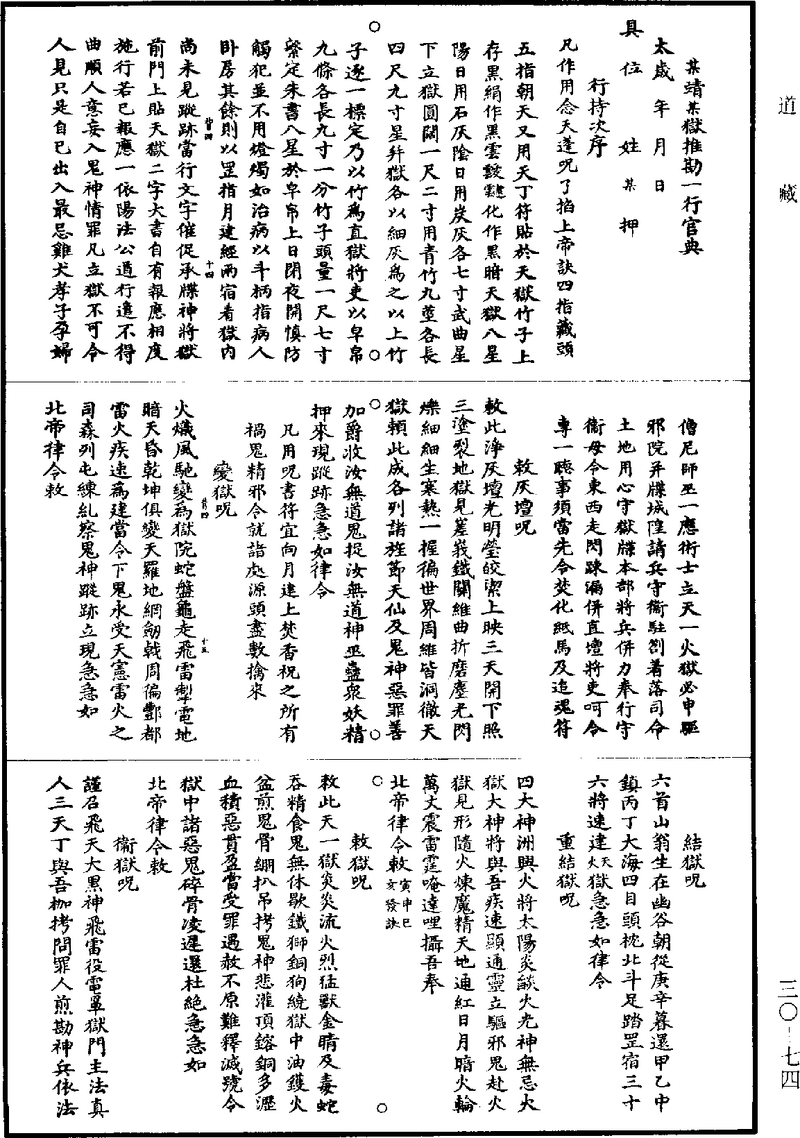 道藏
某靖某獄推勘一行官典
太歲年月日
具位姓某押
行持次序
凡作用念天蓬呪了掐上帝訣四指藏頭
五指朝天又用天丁符貼於天獄竹子上
存黑絹作黑雲靉靆化作黑暗天獄八星
陽日用石灰陰日用炭灰各七寸武曲星
下立獄圓闊一尺二寸用青竹九莖各長
四尺九寸星幷獄各以細灰為之以上竹
子逐一標定乃以竹為直獄將吏以皁帛
九條各長九寸一分竹子頭量一尺七寸
繫定朱書八星於皁帛上日閉夜開慎防
觸犯並不用燈燭如治病以斗柄指病人
臥房其餘則以罡指月建經兩宿看獄內
尚未見蹤跡當行文字催促承牒神將獄
前門上貼天獄二字大書自有報應相度
施行若已報應一依陽法公道行遣不得
曲順人意妄入鬼神情罪凡立獄不可令
人見只是自已出入最忌雞犬孝子孕婦
僧尼師巫一應術士立天一火獄必申驅
邪院并牒城隍請兵守衛駐劄着落司命
土地用心守獄牒本部將兵併力奉行守
衛毋令東西走閃踈漏併直壇將吏呵令
專一聽事須當先令焚化紙馬及追魂符
敕灰壇呪
敕此淨灰壇光明瑩皎潔上映三天開下照
三塗裂地獄見嵳峩鐵關維曲折磨塵光閃
爍細細生寒熱一握徧世界周維皆洞徹天
獄賴此成各列諸旌節天仙及鬼神惡罪善
加爵收汝無道鬼捉汝無道神巫蠱眾妖精
押來現蹤跡急急如律令
凡用呪書符宜向月建上焚香祝之所有
禍鬼精邪令就詣處源頭盡數擒來
變獄呪
火熾風馳變為獄院蛇盤龜走飛雷掣電地
暗天昏乾坤俱變天羅地網劒戟周徧酆都
雷火疾速為建當令下鬼永受天憲雷火之
司森列屯練糺察鬼神蹤跡立現急急如
北帝律令敕
結獄呪
六首山翁生在幽谷朝從庚辛暮還甲乙中
鎮丙丁大海四目頭枕北斗足踏罡宿三十
六將速達天火獄急急如律令
重結獄呪
四大神洲興火將太陽炎燄火光神無忌火
獄大神將與吾疾速顯通靈立驅邪鬼赴火
獄見形隨火煉魔精天地通紅日月暗火輪
萬丈震雷霆唵達哩攝吾奉
北帝律令敕寅申巳亥發訣
敕獄呪
敕此天一獄炎炎流火烈猛獸金睛及毒蛇
吞精食鬼無休歇鐵獅銅狗繞獄中油鑊火
盆煎鬼骨綳扒吊拷鬼神悲灌頂鎔銅多瀝
血積惡貫盈當受罪遇赦不原難釋減號令
獄中諸惡鬼碎骨凌遲還杜絕急急如
北帝律令敕
衛獄呪
謹召飛天大黑神飛雷役電罩獄門主法真
人三天丁與吾枷拷問罪人煎勘神兵依法
三〇—七四